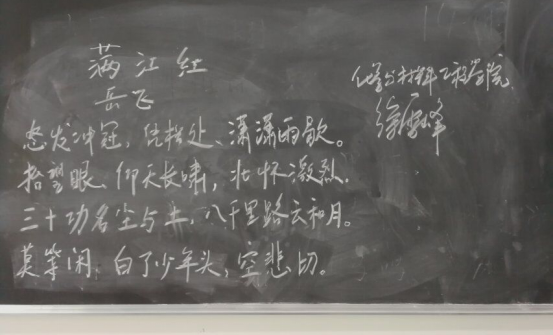 满江红
岳飞
怒发冲冠，凭栏处、潇潇雨歇。
抬望眼，仰天长啸，壮怀激烈。
三十功名尘与土，八千里路云和月。
莫等闲，白了少年头，空悲切。
化学与材料工程学院